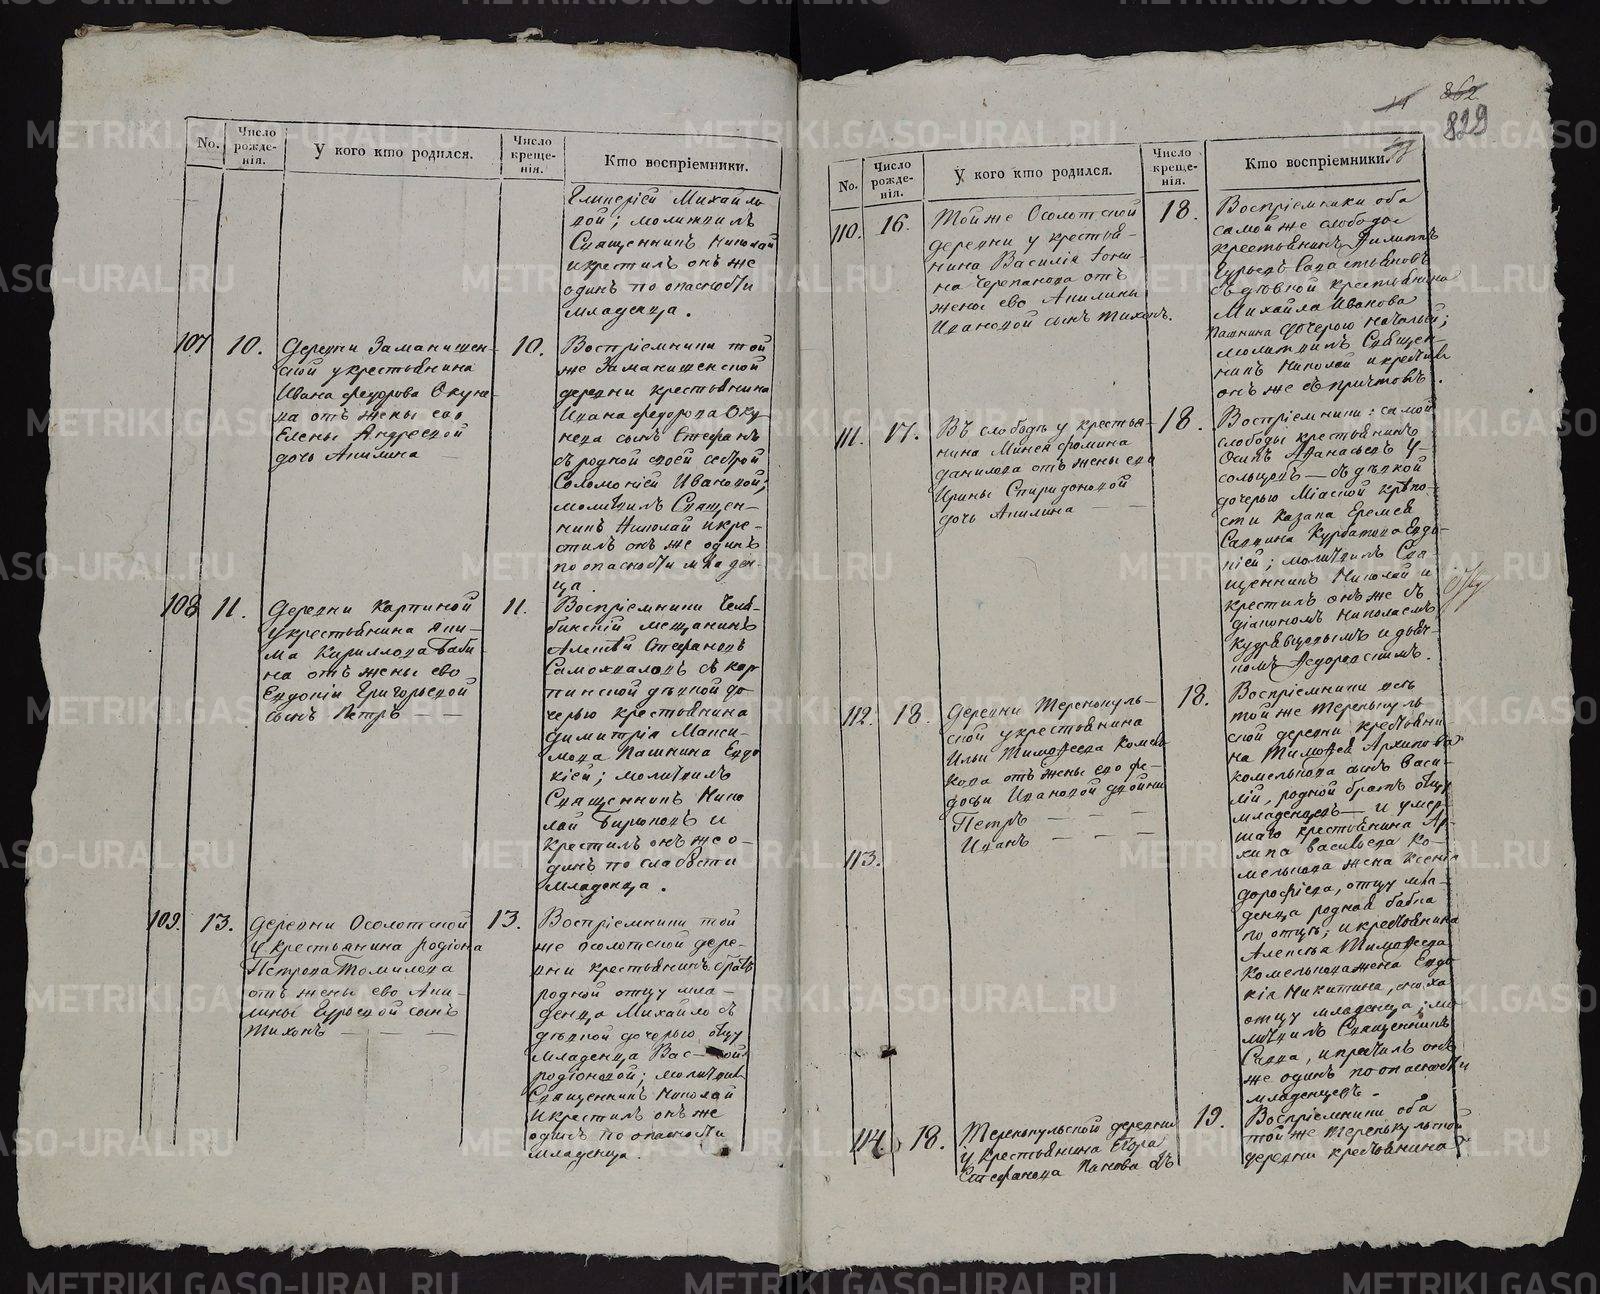 No.
Число рожде- нія.
У кого кто родился.
Число креще- нія.
Кто воспріемники.
Михайло
вой; молитвилъ
Священникъ Николай
и крестилъ онъ же
одинъ по опасности
младенца.
107
10.
Деревни
ской у крестьянина
Ивана Федорова Окуне
ва отъ жены ево
Елены Андреевой
дочь Акилина
10.
Воспріемники той
же
деревни крестьянина
Ивана Федорова Оку
нева сынъ Стефанъ
съ родной своей сестрой
Соломоніей Ивановой;
молитвилъ Священ-
никъ Николай и кре-
стилъ онъ же одинъ
по опасности младен-
ца.
108
11.
Деревни Карпиной
у крестьянина Аки-
ма Кириллова Баби-
на отъ жены ево
Евдокіи Григорьевой
сынъ Петръ
11.
Воспріемники Челя-
бинскій мещанинъ
Алексѣй Стефановъ
Самохваловъ съ кар
пинской дѣвкой до-
черью крестьянина
Димитрія Макси-
мова Пашнина Евдо
кіей; молитвилъ
Священникъ Нико
лай Бирюковъ и
крестилъ онъ же о-
динъ по слабости
младенца.
109.
13.
Деревни Осолотской
у крестьянина Родіона
Петрова Томилова
отъ жены ево Аки-
лины Гурьевой сынъ
Тихонъ
13.
Воспріемники той
же Осолотской дере-
вни крестьянинъ братъ
родной отцу мла-
денца Михайло съ
дѣвкой дочерью отцу
младенца
Родіоновой; молитвилъ
Священникъ Николай
и крестилъ онъ же
одинъ по опасности
младенца.
862
829
No.
Число рожде- нія.
У кого кто родился.
Число креще- нія.
Кто воспріемники.
110.
16.
Той же Осолотской
деревни у крестья-
нина Василія
на Черепанова отъ
жены ево Акилины
Ивановой сынъ Тихонъ.
18.
Воспріемники оба
самой же слободы
крестьянинъ Филиппъ
Гурьевъ Савастьяновъ
съ дѣвкой крестьянина
Михайла Иванова
Пашнина дочерью Натальей;
молитвилъ Священ-
никъ Николай и крестилъ
онъ же съ причтомъ.
111.
17.
Въ слободѣ у крестья-
нина Минея Фомина
Данилова отъ жены ево
Ирины Спиридоновой
дочь Акилина
18.
Воспріемники: самой
слободы крестьянинъ
Осипъ Афанасьевъ У-
сольцовъ — съ дѣвкой
дочерью Міаской крѣпо-
сти казака Еремея
Саввина Курбатова Евдо-
кіей; молитвилъ Свя-
щенникъ Николай и
крестилъ онъ же съ
діакономъ Николаемъ
Кудрявцовымъ и дьяч-
комъ
112.
18.
Деревни Теренкуль-
ской у крестьянина
Ильи Тимофеева Комель
кова отъ жены ево Фе-
досьи Ивановой двойни
Петръ
113.
Иванъ
18.
Воспріемники
той же Теренкуль
ской деревни крестьяни
на Тимофея Архипова
Комелькова сынъ Васи-
лій, родной братъ отцу
младенцевъ — и умер-
шаго крестьянина Ар-
хипа Васильева Ко-
мелькова жена Ксенія
Дорофіева, отцу мла-
денца родная бабка
по отцѣ; и крестьянина
Алексѣя Тимофеева
Комелькова жена Евдо
кія Никитина, сноха
отцу младенца; мо
литвилъ Священникъ
Савва, и крестилъ онъ
же одинъ по опасности
младенцевъ.
114
18.
Теренкульской деревни
у крестьянина Егора
Стефанова Панова
19.
Воспріемники оба
той же Теренкульской
деревни крестьянина
METRIKI.GASO-URAL.RU